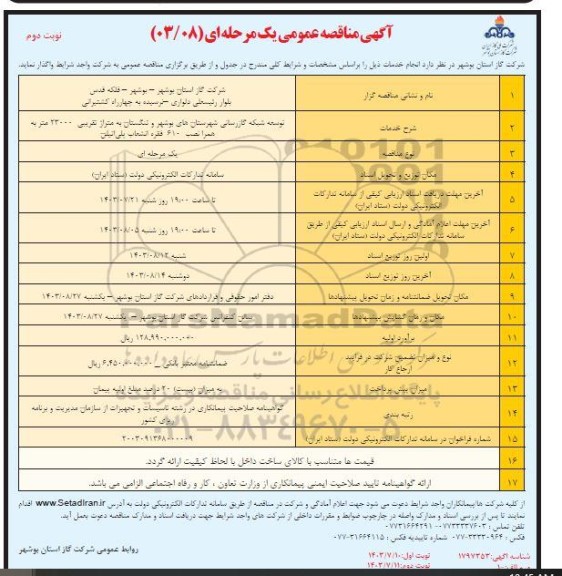 آگهی مناقصه عمومی یک مرحله ای (۰۳/۰۸)
نوبت دوم
شرکت گاز استان بوشهر در نظر دارد انجام خدمات ذیل را براساس مشخصات و شرایط کلی مندرج در جدول و از طریق برگزاری مناقصه عمومی به شرکت واجد شرایط واگذار نماید.
۱ نام و نشانی مناقصه گزار شرکت گاز استان بوشهر – بوشهر – فلکه قدس
بلوار رئیسعلی دلواری – نرسیده به چهارراه کشتیرانی
۲ شرح خدمات توسعه شبکه گازرسانی شهرستان های بوشهر و تنگستان به متراژ تقریبی ۲۳۰۰۰ متر به
همرا نصب ۶۱۰ فقره انشعاب پلی‌اتیلن
۳ نوع مناقصه یک مرحله ای
۴ مکان توزیع و تحویل اسناد سامانه تدارکات الکترونیکی دولت (ستاد ایران)
۵ آخرین مهلت دریافت اسناد ارزیابی کیفی از سامانه تدارکات
الکترونیکی دولت (ستاد ایران) تا ساعت ۱۹:۰۰ روز شنبه ۱۴۰۳/۰۷/۲۱
۶ آخرین مهلت اعلام آمادگی و ارسال اسناد ارزیابی کیفی از طریق
سامانه تدارکات الکترونیکی دولت (ستاد ایران) تا ساعت ۱۹:۰۰ روز شنبه ۱۴۰۳/۰۸/۰۵
۷ اولین روز توزیع اسناد شنبه ۱۴۰۳/۰۸/۱۲
۸ آخرین روز توزیع اسناد دوشنبه ۱۴۰۳/۰۸/۱۴
۹ مکان تحویل ضمانتنامه و زمان تحویل پیشنهادها دفتر امور حقوقی و قراردادهای شرکت گاز استان بوشهر – یکشنبه ۱۴۰۳/۰۸/۲۷
۱۰ مکان و زمان گشایش پیشنهادها سالن کنفرانس شرکت گاز استان بوشهر – یکشنبه ۱۴۰۳/۰۸/۲۷
۱۱ برآورد اولیه ۱۲۸,۹۹۰,۰۰۰,۰۰۰ ریال
۱۲ نوع و میزان تضمین شرکت در فرآیند
ارجاع کار ضمانتنامه معتبر بانکی – ۶,۴۵۰,۰۰۰,۰۰۰ ریال
۱۳ میزان پیش پرداخت به میزان (بیست) ۲۰ درصد مبلغ اولیه پیمان
۱۴ رتبه بندی گواهینامه صلاحیت پیمانکاری در رشته تاسیسات و تجهیزات از سازمان مدیریت و برنامه
ریزی کشور
۱۵ شماره فراخوان در سامانه تدارکات الکترونیکی دولت (ستاد ایران) ۲۰۰۳۰۹۱۳۶۸۰۰۰۰۰۹
۱۶ قیمت ها متناسب با کالای ساخت داخل با لحاظ کیفیت ارائه گردد.
۱۷ ارائه گواهینامه تایید صلاحیت ایمنی پیمانکاری از وزارت تعاون ، کار و رفاه اجتماعی الزامی می باشد.
ParsNamadData
پایگاه اطلاع رسانی مناقصه و مزایده
۰۲۱-۸۸۳۴۹۶۷۰-۵
از کلیه شرکت ها/پیمانکاران واجد شرایط دعوت می شود جهت اعلام آمادگی و شرکت در مناقصه از طریق سامانه تدارکات الکترونیکی دولت به آدرس www.SetadIran.ir اقدام
نمایند تا پس از بررسی اسناد و مدارک واصله در چارچوب ضوابط و مقررات داخلی از شرکت های واجد شرایط جهت دریافت اسناد و مدارک مناقصه دعوت بعمل آید.
تلفن تماس : ۰۷۷۳۳۳۳۷۶۰۳ - ۰۷۷۳۱۶۶۴۲۹۱
فکس : ۰۷۷-۳۳۳۳۰۹۶۴ شماره تاییدیه فکس : ۰۷۷-۳۱۶۶۴۱۱۵
روابط عمومی شرکت گاز استان بوشهر
شناسه آگهی: ۱۷۹۷۳۵۳ نوبت اول: ۱۴۰۳/۷/۱۰
نوبت دوم: ۱۴۰۳/۷/۱۱